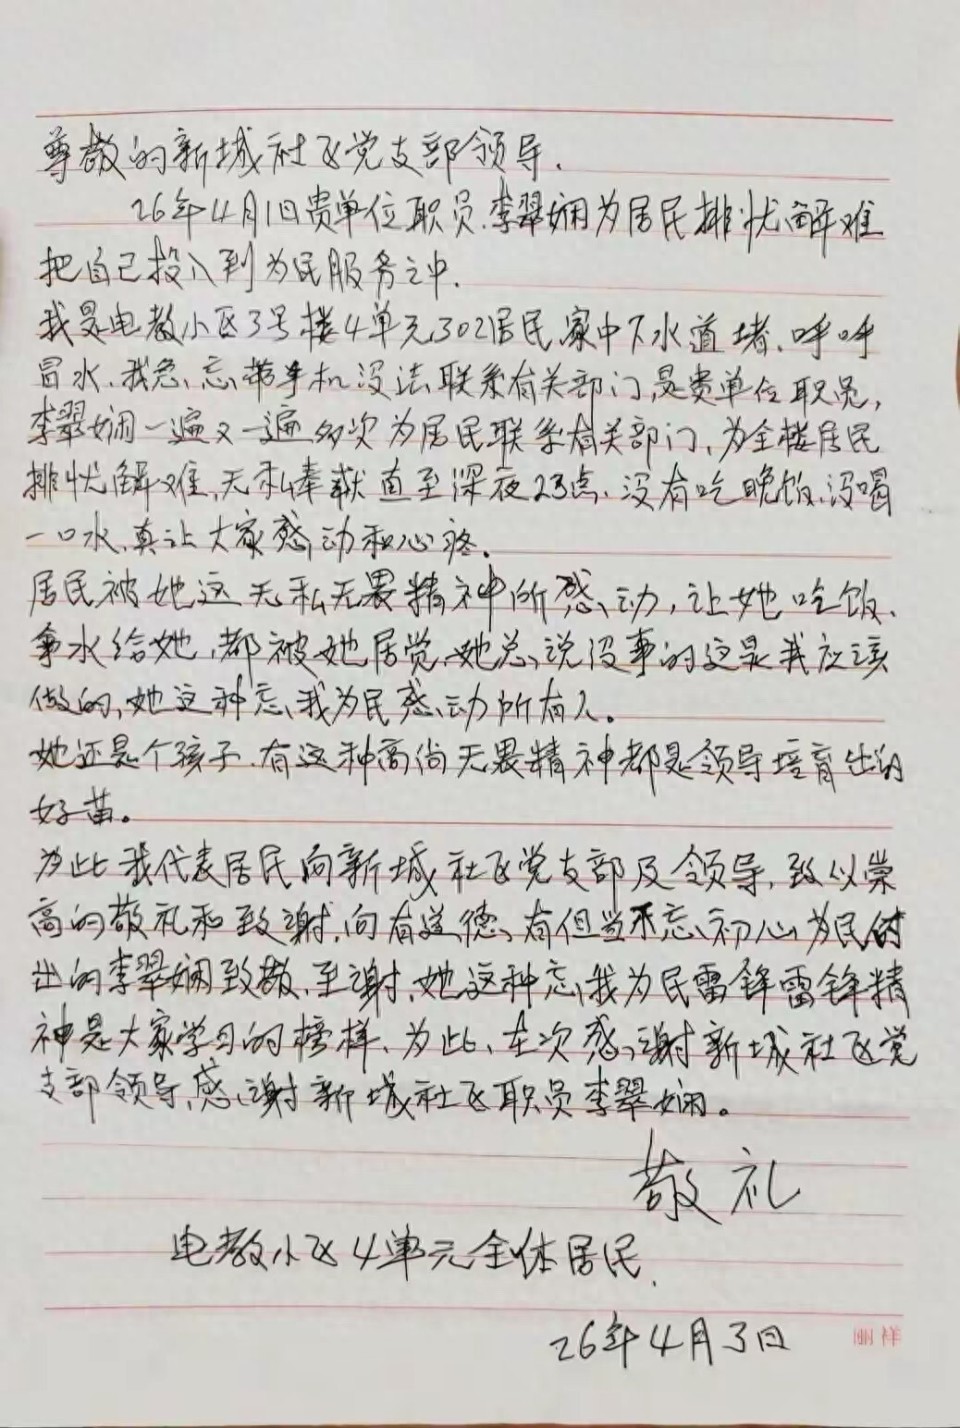 尊敬的新城社区党支部领导.
26年4月1日贵单位职员.李翠娴为居民排忧解难
把自己投入到为民服务之中.
我是电教小区3号楼4单元302居民,家中下水道堵.呼呼
冒水.我急、忘带手机没法联系有关部门,是贵单位职员,
李翠娴一遍又一遍多次为居民联系有关部门,为全楼居民
排忧解难,无私奉献直至深夜23点.没有吃晚饭.没喝
一口水,真让大家感动和心疼.
居民被她这无私无畏精神所感动,让她吃饭、
拿水给她,都被她居觉,她总说没事的这是我应该
做的,她这种忘我为民感动所有人。
她还是个孩子.有这种高尚无畏精神都是领导培育出的
好苗。
为此我代表居民向新城社区党支部及领导,致以崇
高的敬礼和致谢,向有道德,有但当不忘初心为民付
出的李翠娴致敬、至谢,她这种忘我为民雷锋雷锋精
神是大家学习的榜样、为此、在次感谢新城社区党
支部领导,感谢新城社区职员李翠娴。
敬礼
电教小区4单元全体居民.
26年4月3日
丽祥